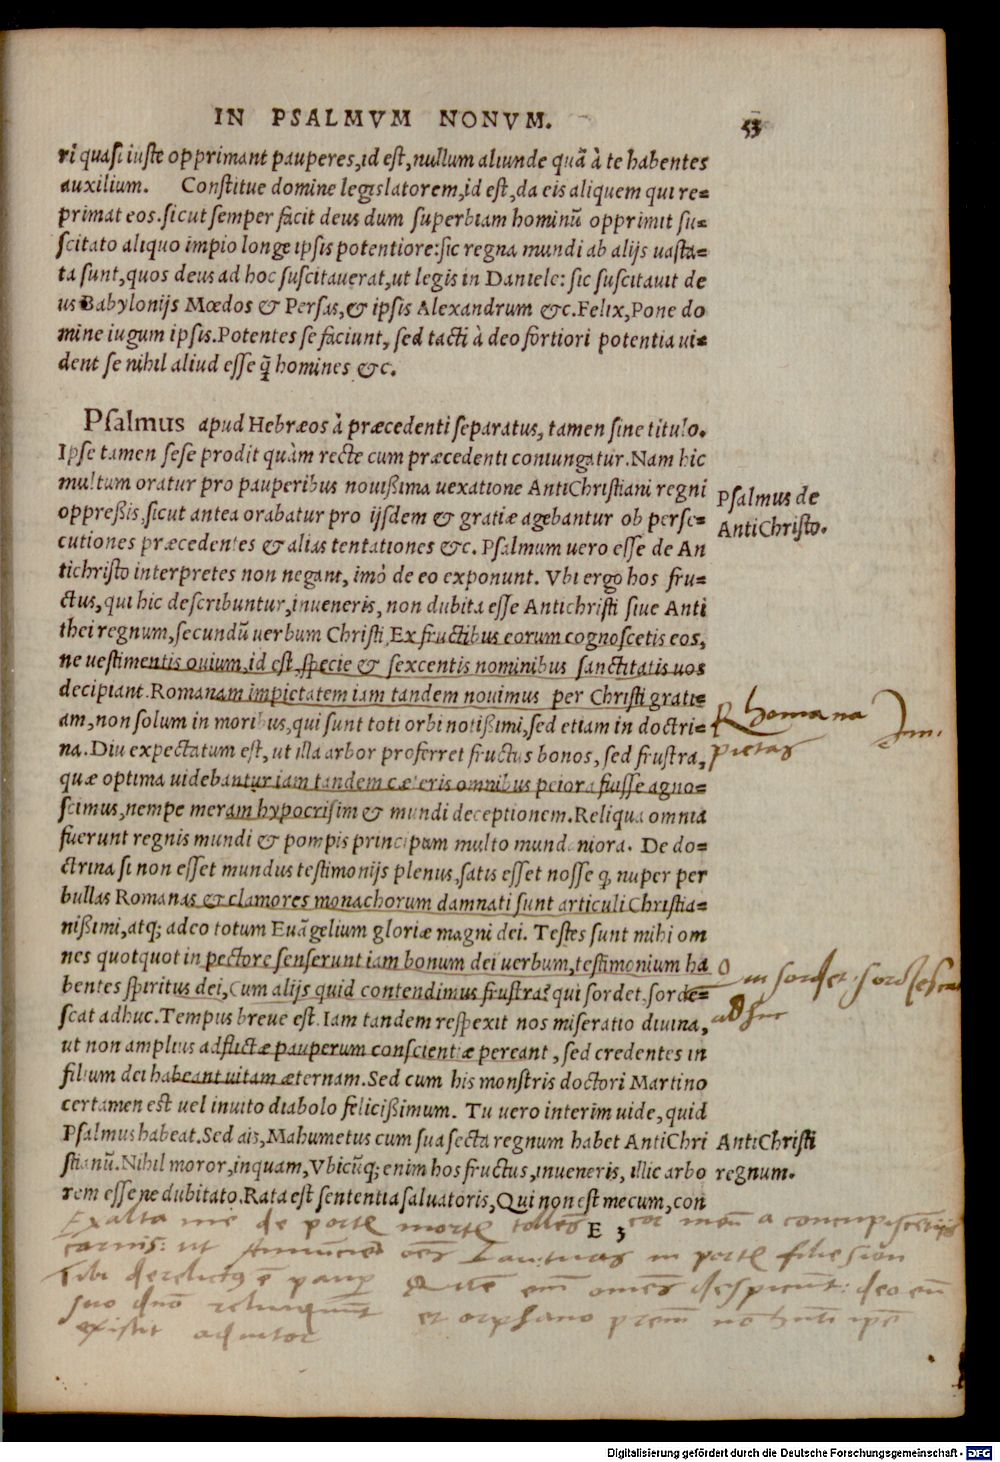 IN PSALMVM NONVM.
53
ri quasi iuste opprimant pauperes, id est, nullum aliunde quã à te habentes
auxilium. Constitue domine legislatorem, id est, da eis aliquem qui re=
primat eos. sicut semper facit deus dum superbiam hominũ opprimit su=
scitato aliquo impio longe ipsis potentiore: sic regna mundi ab alijs uasta=
ta sunt, quos deus ad hoc suscitauerat, ut legis in Daniele: sic suscitauit de
us Babylonijs Mœdos & Persas, & ipsis Alexandrum &c. Felix, Pone do
mine iugum ipsis. Potentes se faciunt, sed tacti à deo fortiori potentia ui=
dent se nihil aliud esse q̃ homines &c.
Psalmus apud Hebræos à præcedenti separatus, tamen sine titulo.
Ipse tamen sese prodit quàm recte cum præcedenti coniungatur. Nam hic
multum oratur pro pauperibus nouißima uexatione AntiChristiani regni
oppreßis, sicut antea orabatur pro ijsdem & gratiæ agebantur ob perse=
cutiones præcedentes & alias tentationes &c. Psalmum uero esse de An
tichristo interpretes non negant, imò de eo exponunt. Vbi ergo hos fru=
ctus, qui hic describuntur, inueneris, non dubita esse Antichristi siue Anti
thei regnum, secundũ uerbum Christi, Ex fructibus eorum cognoscetis eos,
ne uestimentis ouium, id est, specie & sexcentis nominibus sanctitatis uos
decipiant. Romanam impietatem iam tandem nouimus per Christi grati=
am, non solum in moribus, qui sunt toti orbi notißimi, sed etiam in doctri=
na. Diu expectatum est, ut illa arbor proferret fructus bonos, sed frustra,
quæ optima uidebantur iam tandem cæteris omnibus peiora fuisse agno=
scimus, nempe meram hypocrisim & mundi deceptionem. Reliqua omnia
fuerunt regnis mundi & pompis principum multo mundaniora. De do=
ctrina si non esset mundus testimonijs plenus, satis esset nosse q, nuper per
bullas Romanas & clamores monachorum damnati sunt articuli Christia=
nißimi, atq; adeo totum Euãgelium gloriæ magni dei. Testes sunt mihi om
nes quotquot in pectore senserunt iam bonum dei uerbum, testimonium ha
bentes spiritus dei, Cum alijs quid contendimus frustra? qui sordet. sorde=
scat adhuc. Tempus breue est. Iam tandem respexit nos miseratio diuina,
ut non amplius adflictæ pauperum conscientiæ pereant, sed credentes in
filium dei habeant uitam æternam. Sed cum his monstris doctori Martino
certamen est uel inuito diabolo felicißimum. Tu uero interim uide, quid
Psalmus habeat. Sed ais, Mahumetus cum sua secta regnum habet AntiChri
stianũ. Nihil moror, inquam, Vbicũq; enim hos fructus, inueneris, illic arbo
rem esse ne dubitato. Rata est sententia saluatoris, Qui non est mecum, con
E 3
Psalmus de
AntiChristo.
Rhomana
pietas
sordet sordescat
adhuc
AntiChristi
regnum.
Exalta me de port mort tolles cor meũ a concupiscẽtijs
carnis: ut Annunciẽ oẽs Laut tuas in port filie sion
Tibi derelictus ẽ paup Qui em omẽs despiciũt: deo
suo relinquũt et orphano nõ
existit adiutor